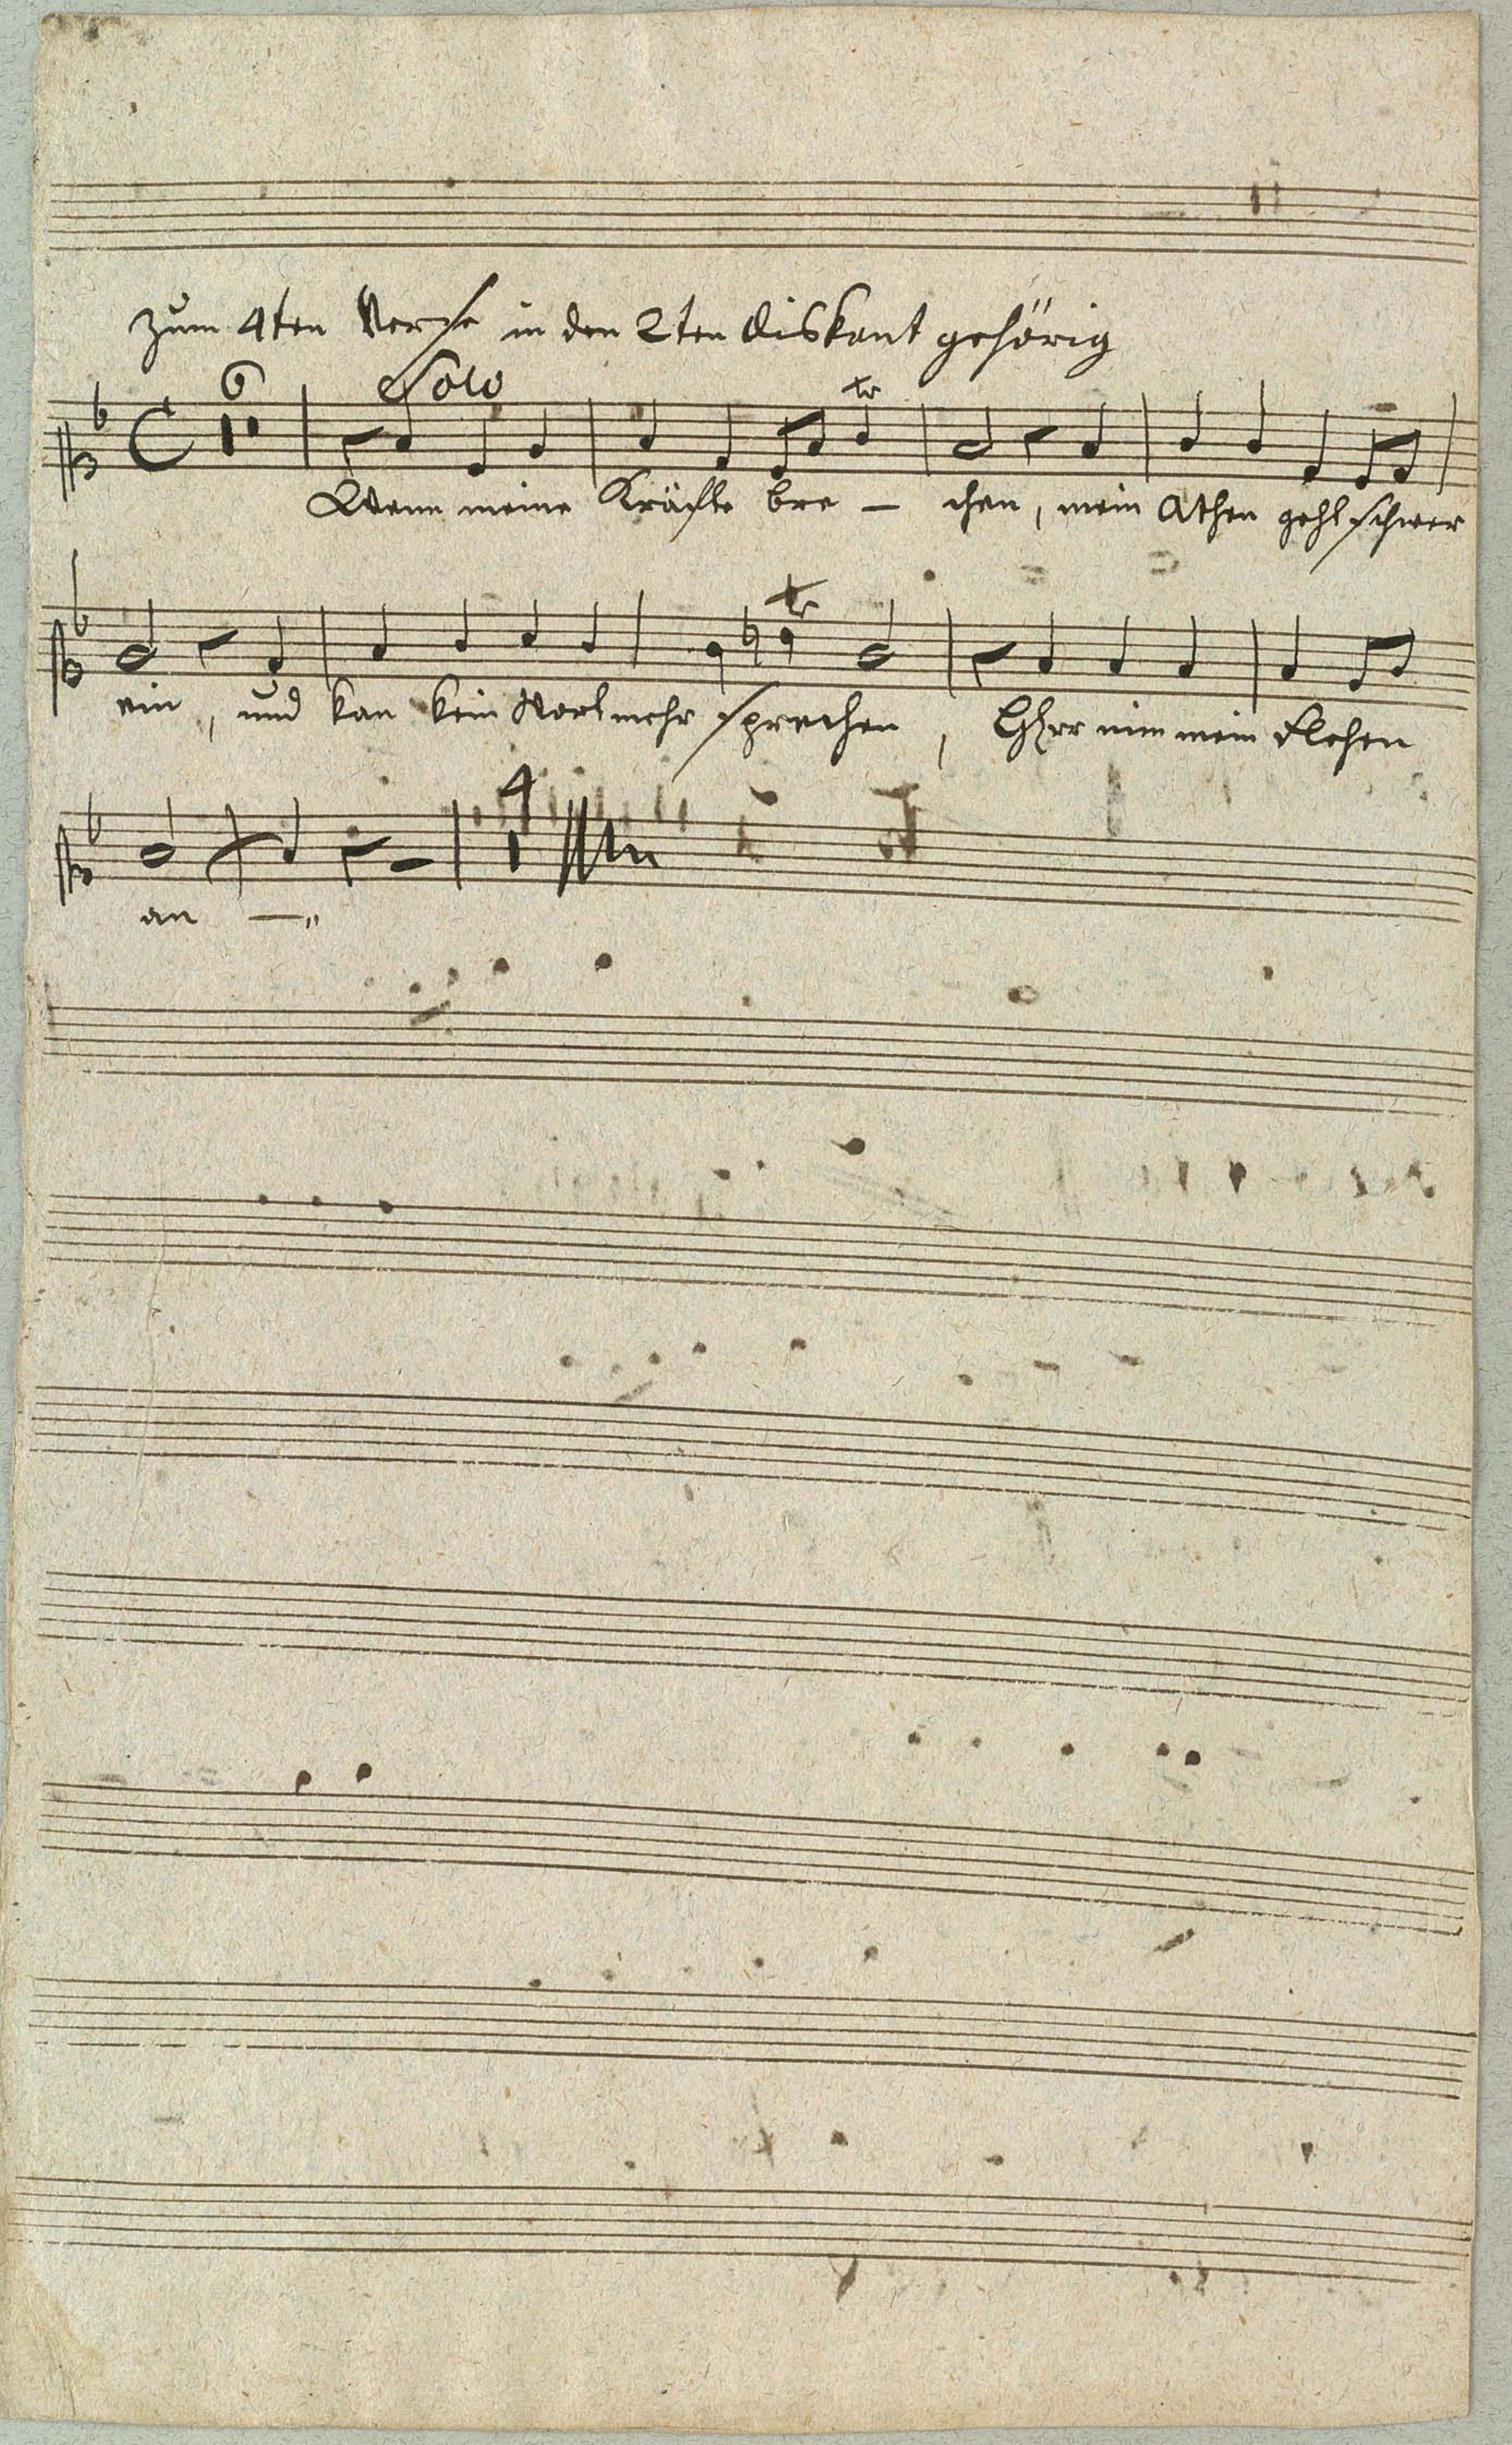 zum 4ten Verse in den 2ten Diskant gehörig
6 Solo tr
Wenn meine Kräfte bre – chen, mein Athen geht schwer
tr
ein, und kan kein Wort mehr sprechen, HErr nim mein Flehen
4
an –"